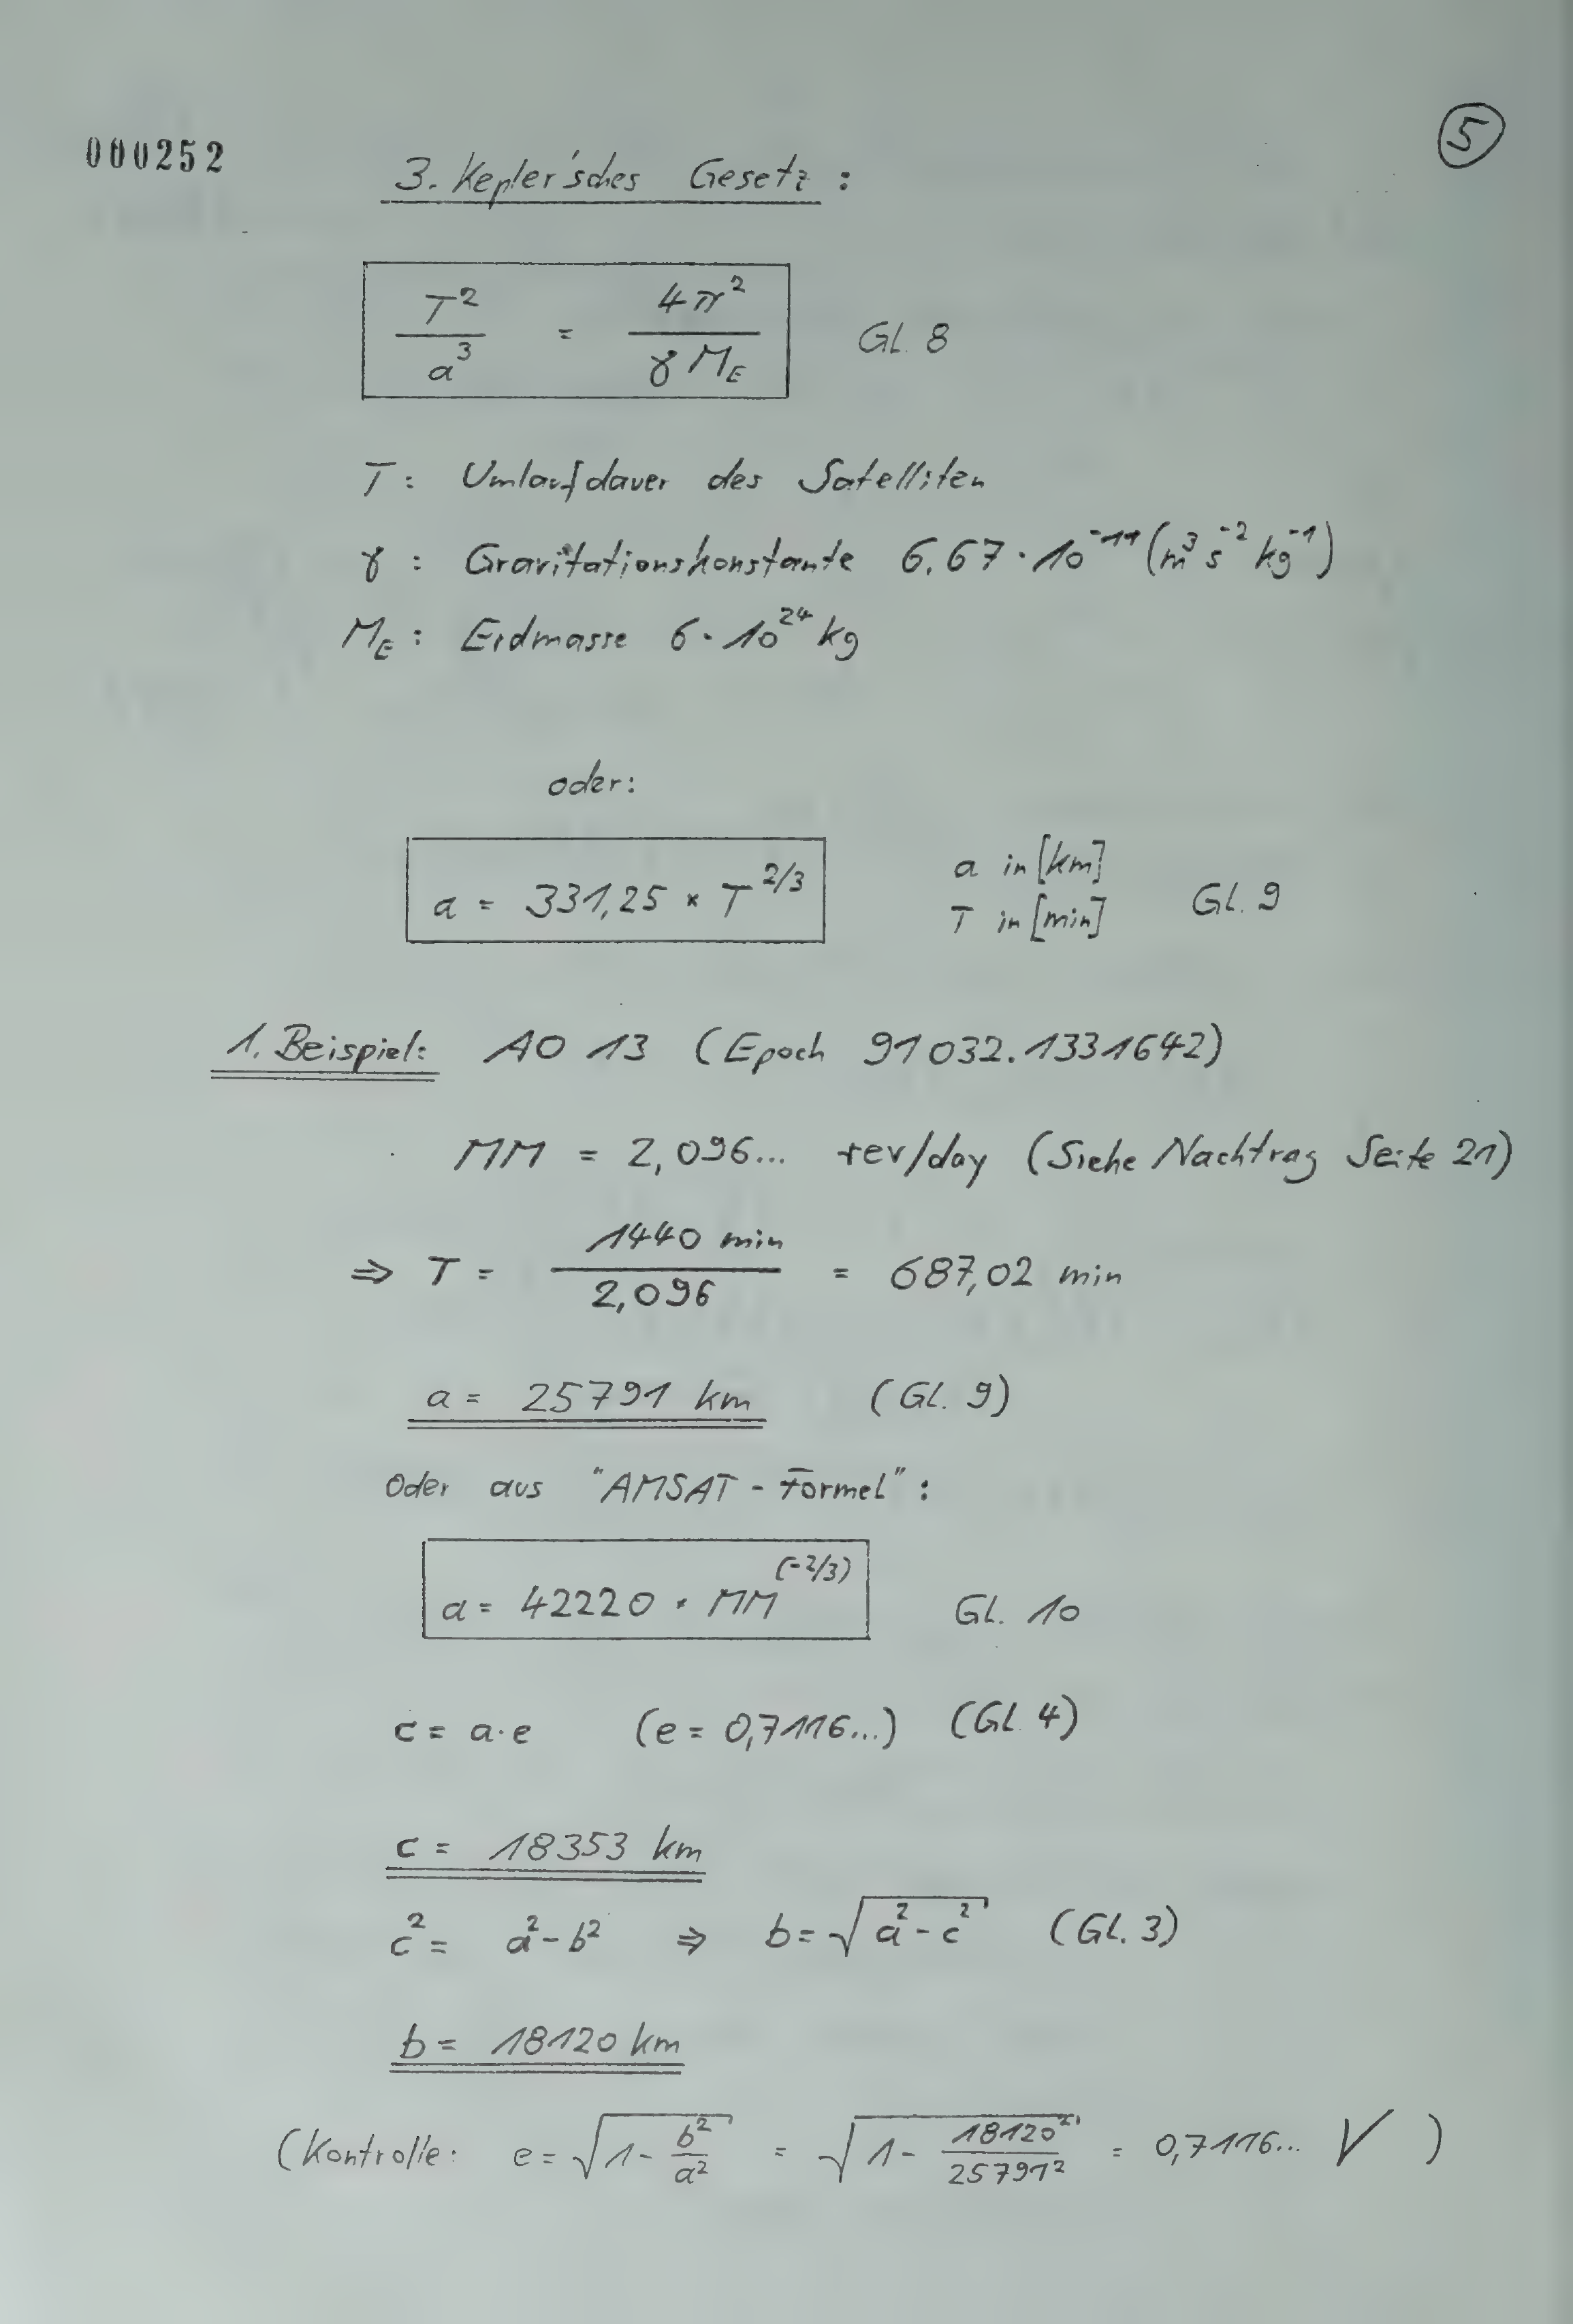 000252
5
3. Kepler'sches Gesetz:
T²/a³ = 4π²/γ M_E Gl. 8
T: Umlaufdauer des Satelliten
γ: Gravitationskonstante 6,67 · 10⁻¹¹ (m³ s⁻² kg⁻¹)
M_E: Erdmasse 6 · 10²⁴ kg
oder:
a = 331,25 * T^2/3 a in [km] T in [min] Gl. 9
1. Beispiel: AO 13 (Epoch 91032.1331642)
MM = 2,096... rev/day (Siehe Nachtrag Seite 21)
⇒ T = 1440 min / 2,096 = 687,02 min
a = 25791 km (Gl. 9)
Oder aus "AMSAT - Formel":
a = 42220 * MM^(-2/3) Gl. 10
c = a·e (e = 0,7116...) (Gl. 4)
c = 18353 km
c² = a² - b² ⇒ b = √(a² - c²) (Gl. 3)
b = 18120 km
(Kontrolle: e = √(1 - b²/a²) = √(1 - 18120²/25791²) = 0,7116... √ )